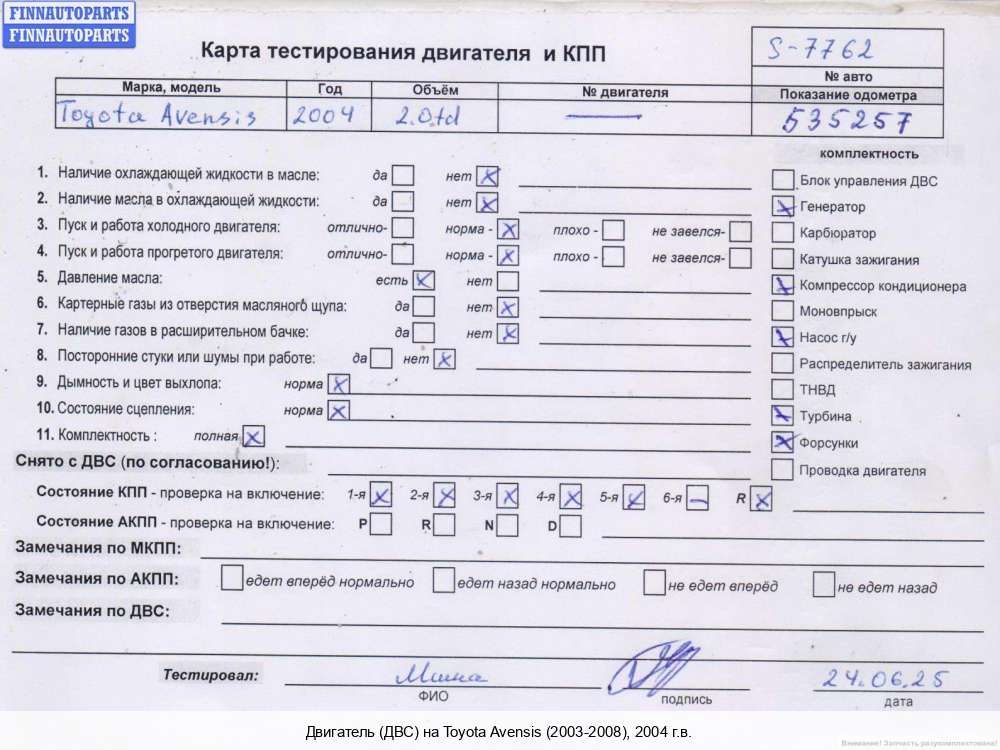 FINNAUTOPARTS
FINNAUTOPARTS
Карта тестирования двигателя и КПП
S-7762
№ авто
Марка, модель Год Объём № двигателя Показание одометра
Toyota Avensis 2004 2.0td — 535257
комплектность
1. Наличие охлаждающей жидкости в масле: да нет
Блок управления ДВС
2. Наличие масла в охлаждающей жидкости: да нет
Генератор
3. Пуск и работа холодного двигателя: отлично- норма - плохо - не завелся-
Карбюратор
4. Пуск и работа прогретого двигателя: отлично- норма - плохо - не завелся-
Катушка зажигания
5. Давление масла: есть нет
Компрессор кондиционера
6. Картерные газы из отверстия масляного щупа: да нет
Моновпрыск
7. Наличие газов в расширительном бачке: да нет
Насос г/у
8. Посторонние стуки или шумы при работе: да нет
Распределитель зажигания
9. Дымность и цвет выхлопа: норма
ТНВД
10. Состояние сцепления: норма
Турбина
11. Комплектность : полная
Форсунки
Снято с ДВС (по согласованию!):
Проводка двигателя
Состояние КПП - проверка на включение: 1-я 2-я 3-я 4-я 5-я 6-я R
Состояние АКПП - проверка на включение: P R N D
Замечания по МКПП:
Замечания по АКПП: едет вперёд нормально едет назад нормально не едет вперёд не едет назад
Замечания по ДВС:
Тестировал: Миша 24.06.25
ФИО подпись дата
Двигатель (ДВС) на Toyota Avensis (2003-2008), 2004 г.в.
Внимание! Запчасть разукомплектована!